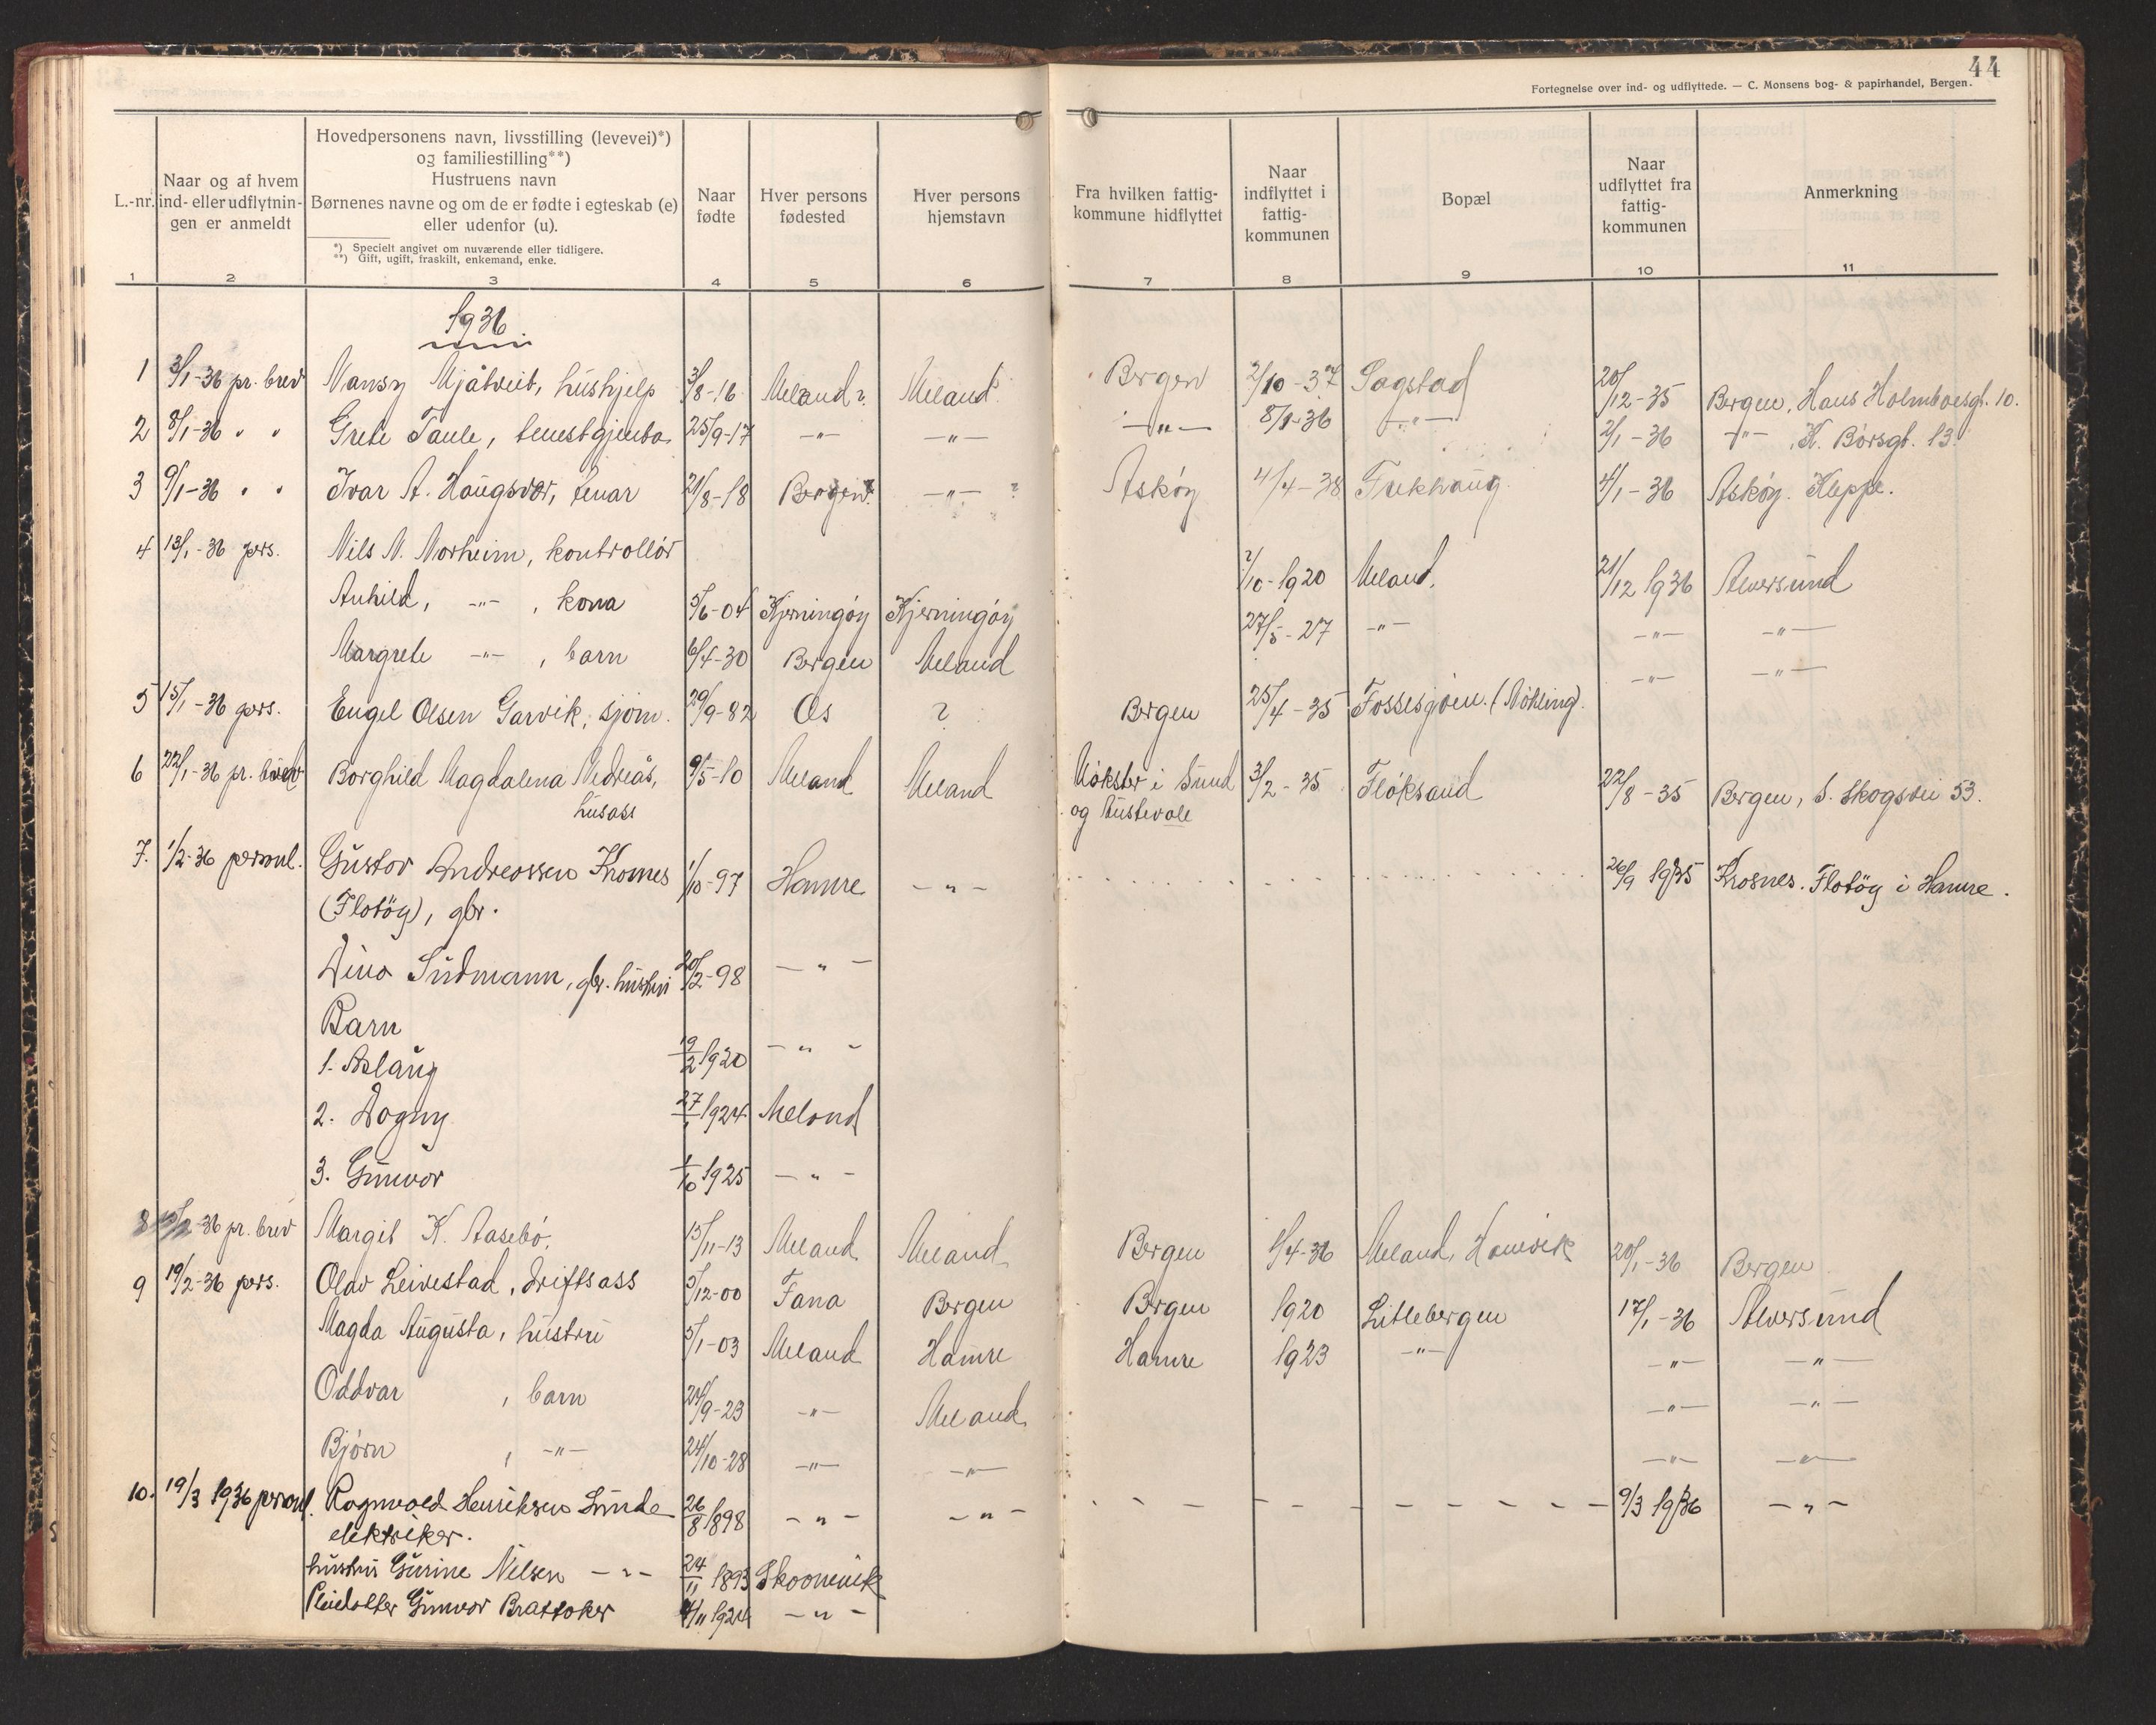 44
Fortegnelse over ind- og udflyttede. — C. Monsens bog- & papirhandel, Bergen.
L.-nr.
Naar og af hvem
ind- eller udflytnin-
gen er anmeldt
Hovedpersonens navn, livsstilling (levevei)*)
og familiestilling**)
Hustruens navn
Børnenes navne og om de er fødte i egteskab (e)
eller udenfor (u).
*) Specielt angivet om nuværende eller tidligere.
**) Gift, ugift, fraskilt, enkemand, enke.
Naar
fødte
Hver persons
fødested
Hver persons
hjemstavn
Fra hvilken fattig-
kommune hidflyttet
Naar
indflyttet i
fattig-
kommunen
Bopæl
Naar
udflyttet fra
fattig-
kommunen
Anmerkning
1 2 3 4 5 6 7 8 9 10 11
1936
1 3/1-36 pr. brev Nansy Mjåtveit, hushjelp 3/8-16 Meland? Meland? Bergen 2/10-37 Sagstad 20/12-35 Bergen, Hans Holmboesgt. 10.
2 8/1-36 " " Grete Taule, tenestgjenta 25/9-17 -"- -"- -"- 8/1-36 -"- 2/1-36 -"- K. Børsgt. 13.
3 9/1-36 " " Ivar A. Haugsvær, tenar 21/8-18 Bergen? -"- ? Askøy 4/4-38 Frekhaug. 4/1-36 Askøy. Kleppe.
4 13/1-36 pers. Nils N. Norheim, kontrollør ?/10-1920 Meland. 21/12 1936 Alversund
Anhild, -"-, kona 5/6-04 Kjerningøy Kjerningøy 27/5-27 -"- -"- -"-
Margrete -"-, barn 6/4-30 Bergen Meland -"- -"-
5 15/1-36 pers. Engel Olsen Garvik, sjøm. 29/9-82 Os ? Bergen 25/4-35 Fossesjøen. (Nøkling).
6 22/1-36 pr. brev Borghild Magdalena Nedreås, 9/5-10 Meland Meland Møkster i Sund 3/2-35 Fløksand 22/8-35 Bergen, S. Skogsvei 53.
husass og Austevoll
7. 1/2-36 personl. Gustav Andreassen Krosnes 1/10-97 Hamre -"- 26/9 1935 Krosnes. Flatøy i Hamre.
(Flatøy), gbr.
Dina Sudmann, gbr. hustru 20/2-98 -"-
Barn
1. Aslaug 19/2 1920 -"-
2. Dagny 27/1 1924 Meland
3. Gunvor 1/10 1925 -"-
8 -36 pr. brev Margit K. Aasebø. 15/11-13 Meland Meland Bergen 1/4-36 Meland, 20/1-36 Bergen
9 19/2-36 pers. Olav Leivestad, driftsass 5/12-00 Fana Bergen Bergen 1920 Litlebergen 17/1-36 Alversund
Magda Augusta, hustru 5/1-03 Meland Hamre Hamre 1923 -"- -"- -"-
Oddvar , barn 24/9-23 -"- Meland -"- -"-
Bjørn , -"- 24/10-28 -"- -"- -"- -"-
10. 19/3 1936 personl. Ragnvald Henriksen Lunde 26/8 1898 -"- -"- 9/3 1936 -"-
elektriker.
hustru Gurine Nilsen -"- 24/11 1893 Skaanevik
Pleiedatter Gunvor Brattaker 4/11 1924 -"-